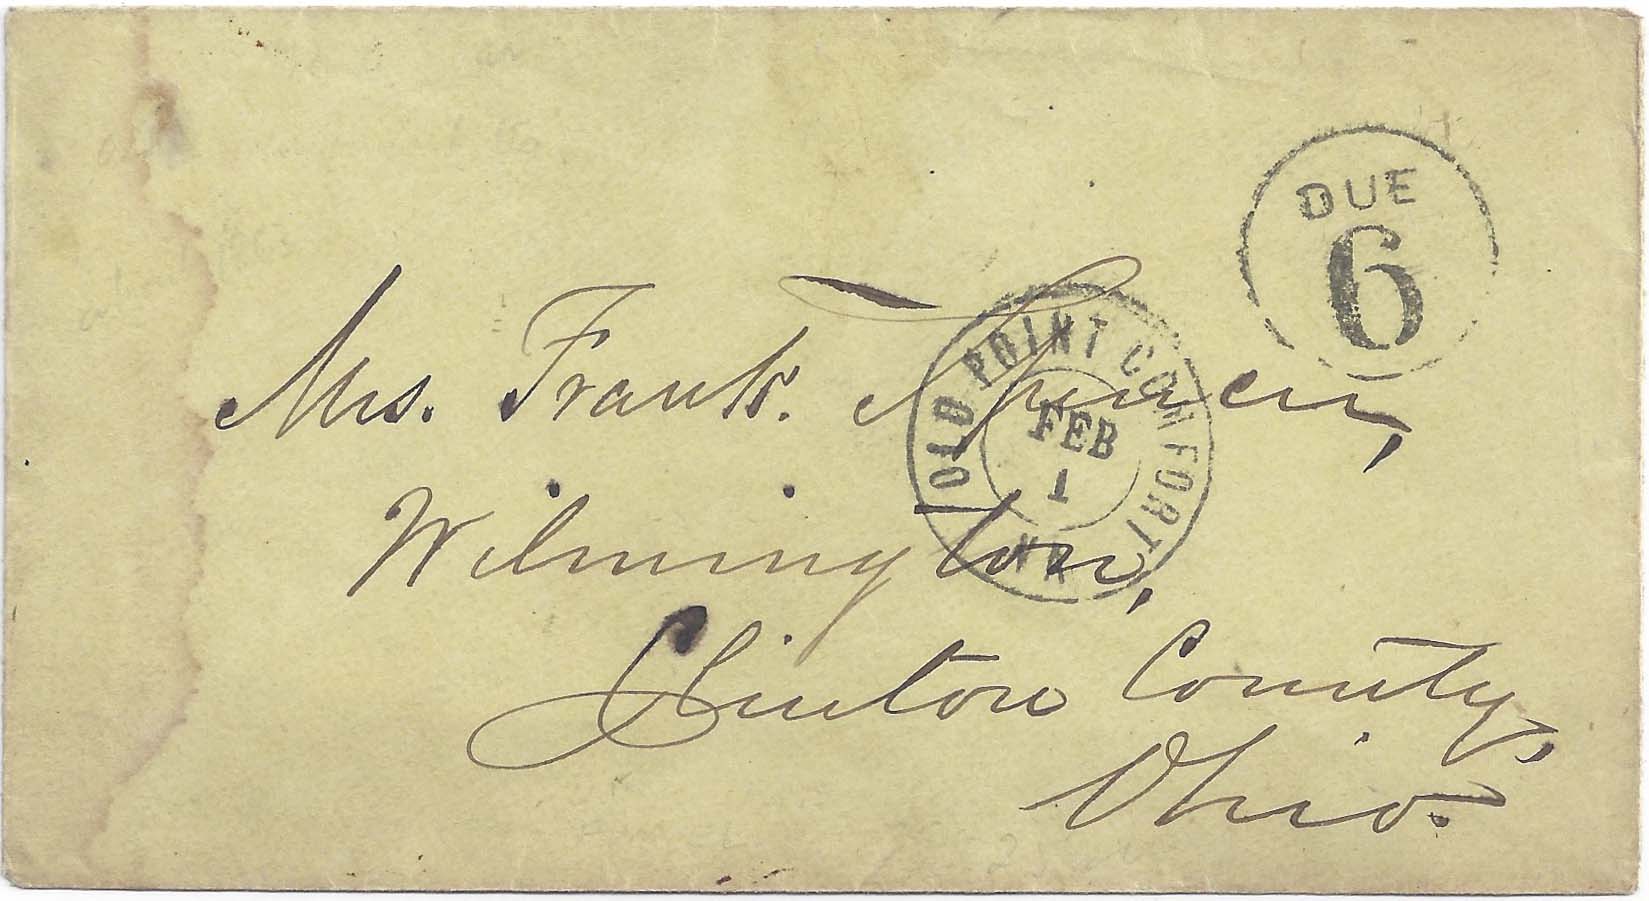 DUE
6
OLD POINT COMFORT
VA
FEB
1
Mrs. Frank. Spencer,
Wilmington,
Clinton County,
Ohio.